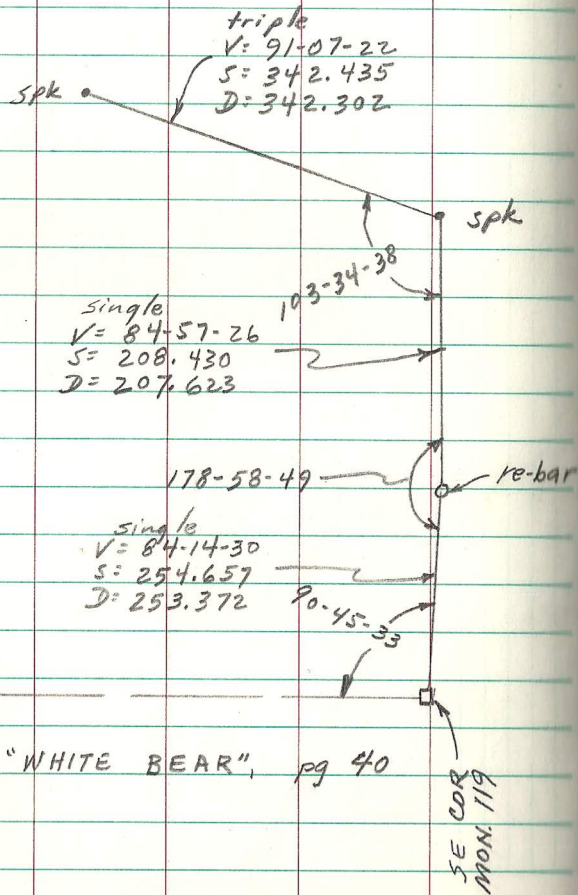 triple
V= 91-07-22
S= 342.435
D= 342.302
spk
spk
103-34-38
single
V= 84-57-26
S= 208.430
D= 207.623
178-58-49
re-bar
single
V= 84-14-30
S= 254.657
D= 253.372
90-45-33
"WHITE BEAR", pg 40
SE COR
MON. 119